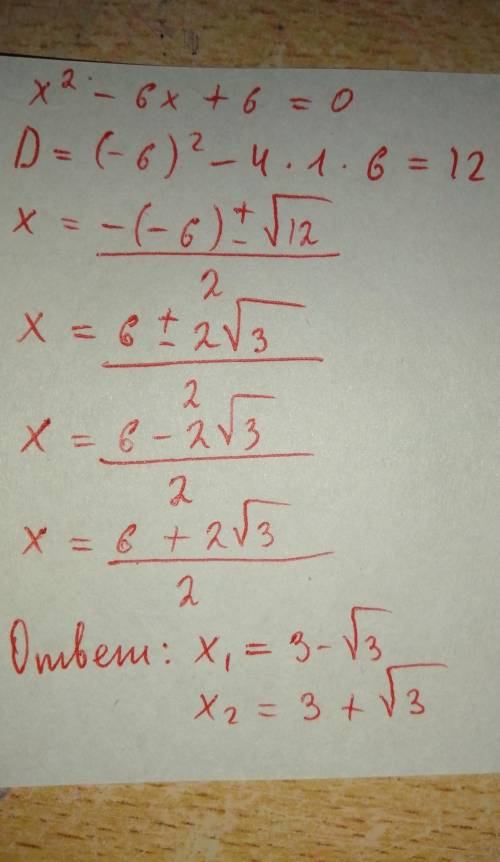 x² - 6x + 6 = 0
D = (-6)² - 4 · 1 · 6 = 12
x = (-(-6) ± √12) / 2
x = (6 ± 2√3) / 2
x = (6 - 2√3) / 2
x = (6 + 2√3) / 2
Ответ: x₁ = 3 - √3
x₂ = 3 + √3